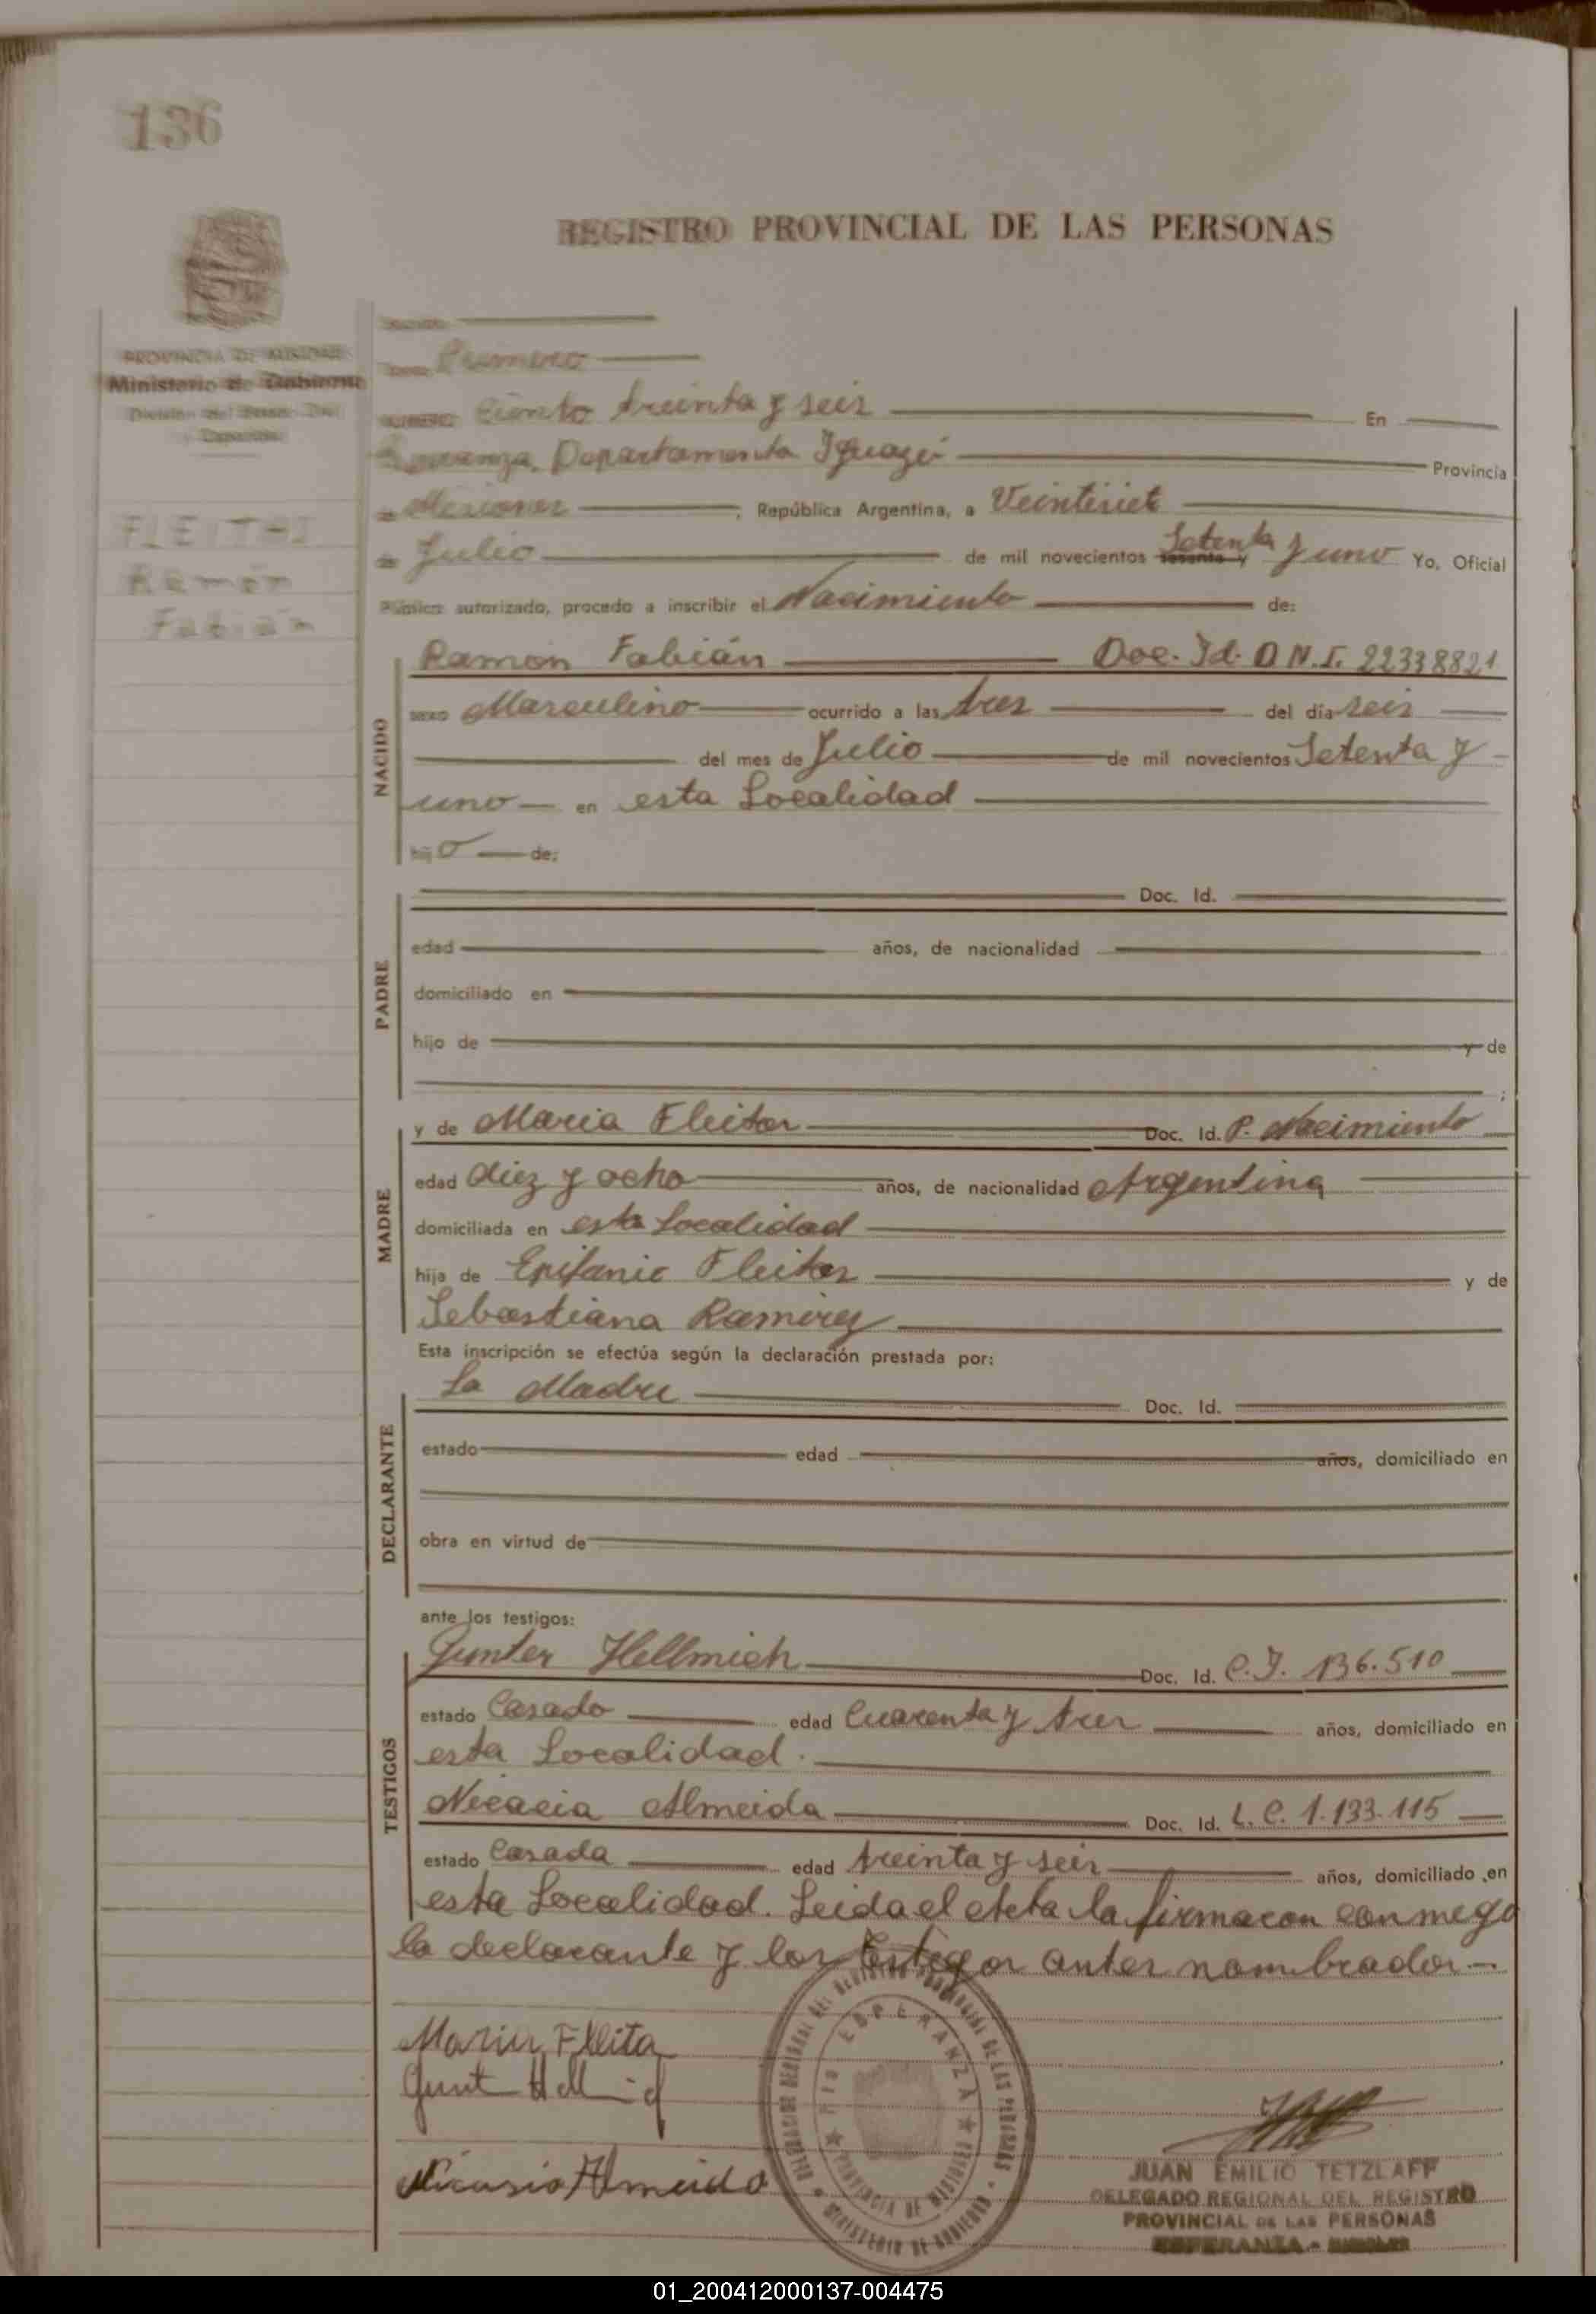 136
REGISTRO PROVINCIAL DE LAS PERSONAS
PROVINCIA DE MISIONES
Ministerio de Gobierno
FLEITAS
Ramón
Fabián
Primero
Ciento treinta y seis En
Esperanza, Departamento Iguazú Provincia
de Misiones ; República Argentina, a Veintisiete
de Julio de mil novecientos sesenta y Setenta y uno Yo, Oficial
Público autorizado, procedo a inscribir el Nacimiento de:
NACIDO
Ramón Fabián Doc. Id. D.N.I. 22338821
sexo Masculino ocurrido a las tres del día seis
del mes de Julio de mil novecientos Setenta y
uno en esta Localidad
hijo de:
PADRE
Doc. Id.
edad años, de nacionalidad
domiciliado en
hijo de y de
;
MADRE
y de Maria Fleitas Doc. Id. P. Nacimiento
edad diez y ocho años, de nacionalidad Argentina
domiciliada en esta Localidad
hija de Epifanio Fleitas y de
Sebastiana Ramirez
Esta inscripción se efectúa según la declaración prestada por:
DECLARANTE
La Madre Doc. Id.
estado edad años, domiciliado en
obra en virtud de
ante los testigos:
TESTIGOS
Gunter Hellmich Doc. Id. C.I. 136.510
estado Casado edad Cuarenta y tres años, domiciliado en
esta Localidad.
Nicacia Almeida Doc. Id. L.C. 1.133.115
estado Casada edad treinta y seis años, domiciliado en
esta Localidad. Leida el acta la firmaron conmigo
la declarante y los testigos antes nombrados
Maria Fleita
Gunt Hellmich
Nicasia Almeida
DELEGACION REGIONAL DEL REGISTRO PROVINCIAL DE LAS PERSONAS
ESPERANZA
PROVINCIA DE MISIONES
MINISTERIO DE GOBIERNO
JUAN EMILIO TETZLAFF
DELEGADO REGIONAL DEL REGISTRO
PROVINCIAL DE LAS PERSONAS
ESPERANZA - MISIONES
01_200412000137-004475